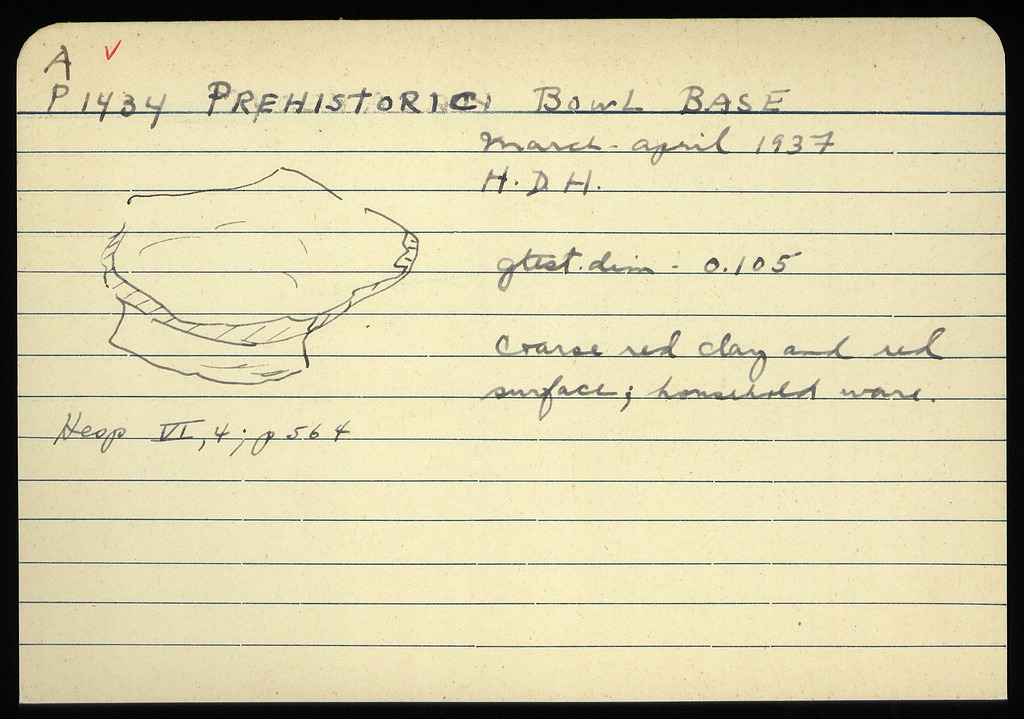 A ✓
P 1434 PREHISTORIC BOWL BASE
March - April 1937
H. D. H.
gtest. dim - 0.105
Coarse red clay and red
surface; household ware.
Hesp VI, 4; p 564